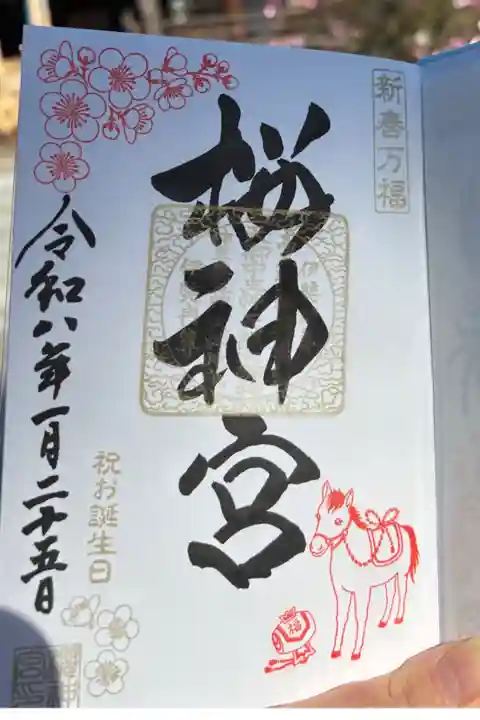 新春万福
櫻神宮
令和八年一月二十五日
祝お誕生日
福